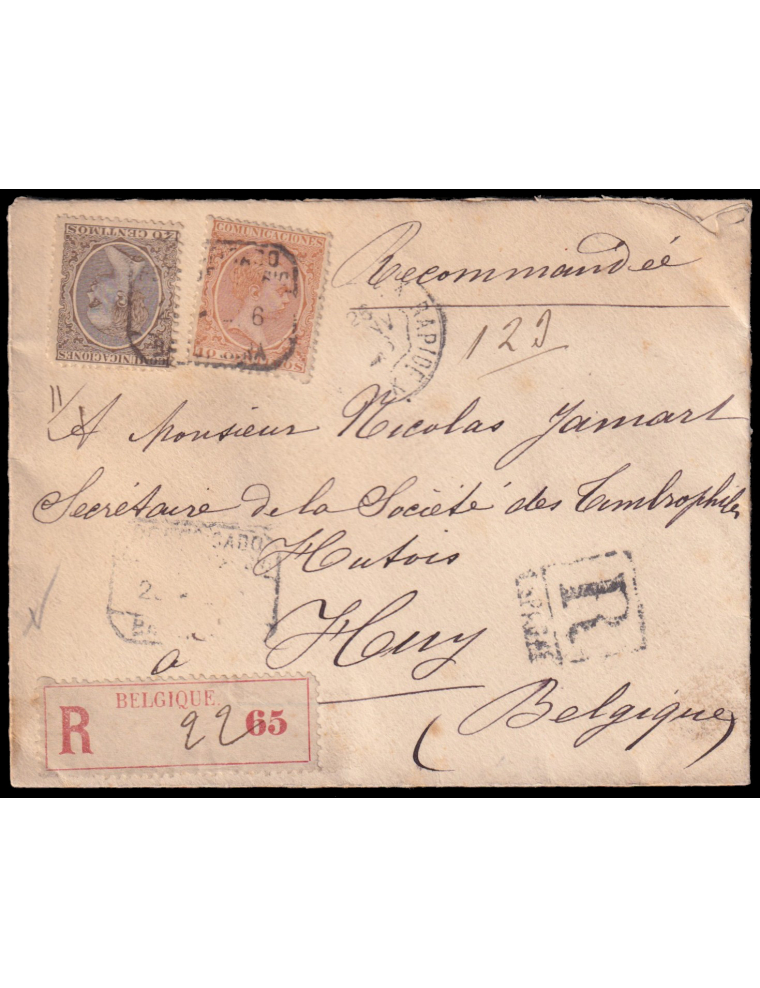 COMUNICACIONES
40 CENTIMOS
COMUNICACIONES
6
Recommandée
RAPIDE
129
A Monsieur Nicolas Jamart
Secrétaire de la Société des Timbrophiles
Hutois
à Huy
(Belgique)
R
BELGIQUE.
R 2265